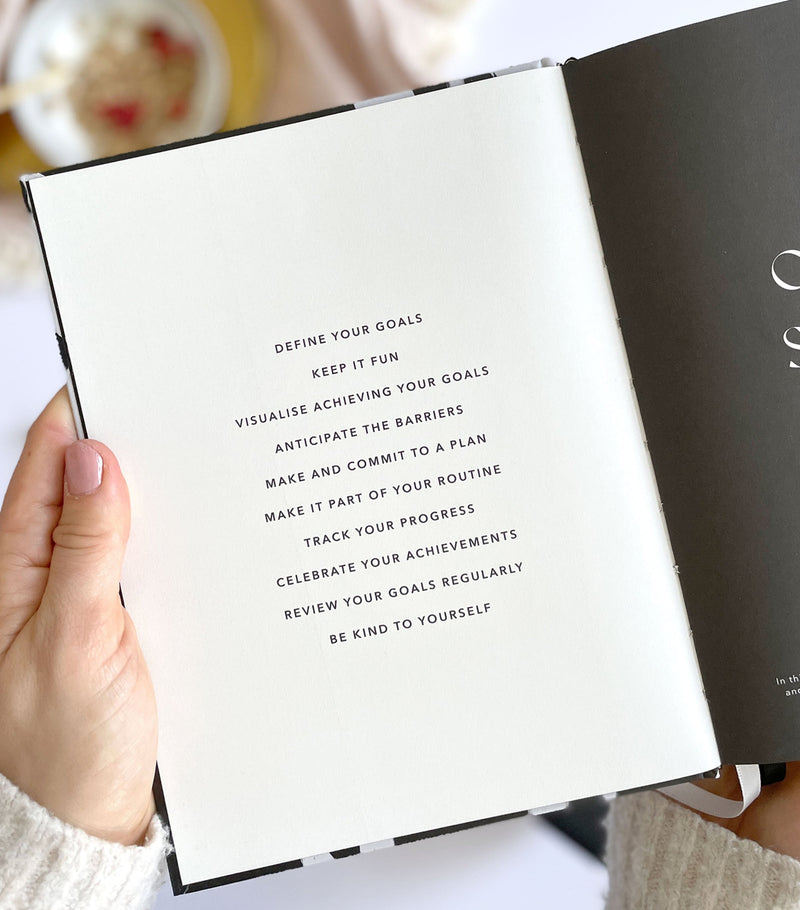 DEFINE YOUR GOALS
KEEP IT FUN
VISUALISE ACHIEVING YOUR GOALS
ANTICIPATE THE BARRIERS
MAKE AND COMMIT TO A PLAN
MAKE IT PART OF YOUR ROUTINE
TRACK YOUR PROGRESS
CELEBRATE YOUR ACHIEVEMENTS
REVIEW YOUR GOALS REGULARLY
BE KIND TO YOURSELF
In